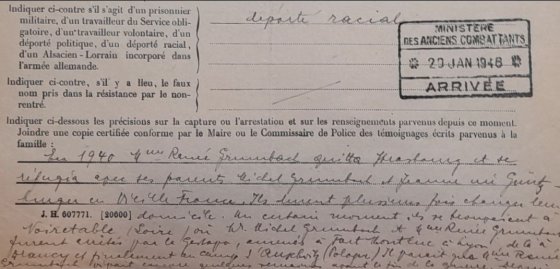 Indiquer ci-contre s'il s'agit d'un prisonnier
militaire, d'un travailleur du Service obli-
gatoire, d'un travailleur volontaire, d'un
déporté politique, d'un déporté racial,
d'un Alsacien-Lorrain incorporé dans
l'armée allemande.
déporté racial
MINISTÈRE
DES ANCIENS COMBATTANTS
29 JAN 1946
ARRIVÉE
Indiquer ci-contre, s'il y a lieu, le faux
nom pris dans la résistance par le non-
rentré.
Indiquer ci-dessous les précisions sur la capture ou l'arrestation et sur les renseignements parvenus depuis ce moment.
Joindre une copie certifiée conforme par le Maire ou le Commissaire de Police des témoignages écrits parvenus à la
famille :
En 1940 Renée Grumbach quitta Strasbourg et se
réfugia avec ses parents Michel Grumbach et Jeanne née
en France. Ils durent plusieurs fois changer leur
J. H. 607771. [20600] domicile. Un certain moment, ils se trouvaient à
Noirétable (Loire) où Mr Michel Grumbach et Renée Grumbach
furent arrêtés par la Gestapo, amenés à Fort Montluc à Lyon, de là à
Drancy et finalement au camp d' (Pologne). Il paraît que
Grumbach vivait encore quelques semaines avant la fin de la